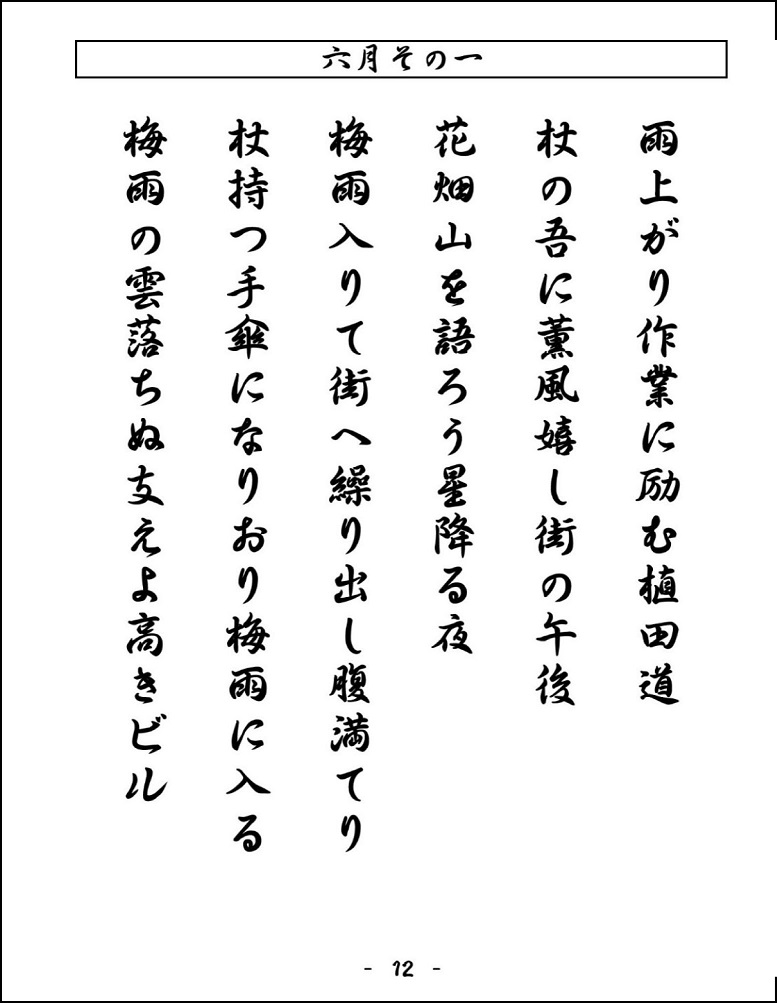 六月その一
雨上がり作業に励む植田道
杖の吾に薫風嬉し街の午後
花畑山を語ろう星降る夜
梅雨入りて街へ繰り出し腹満てり
杖持つ手傘になりおり梅雨に入る
梅雨の雲落ちぬ支えよ高きビル
- 12 -